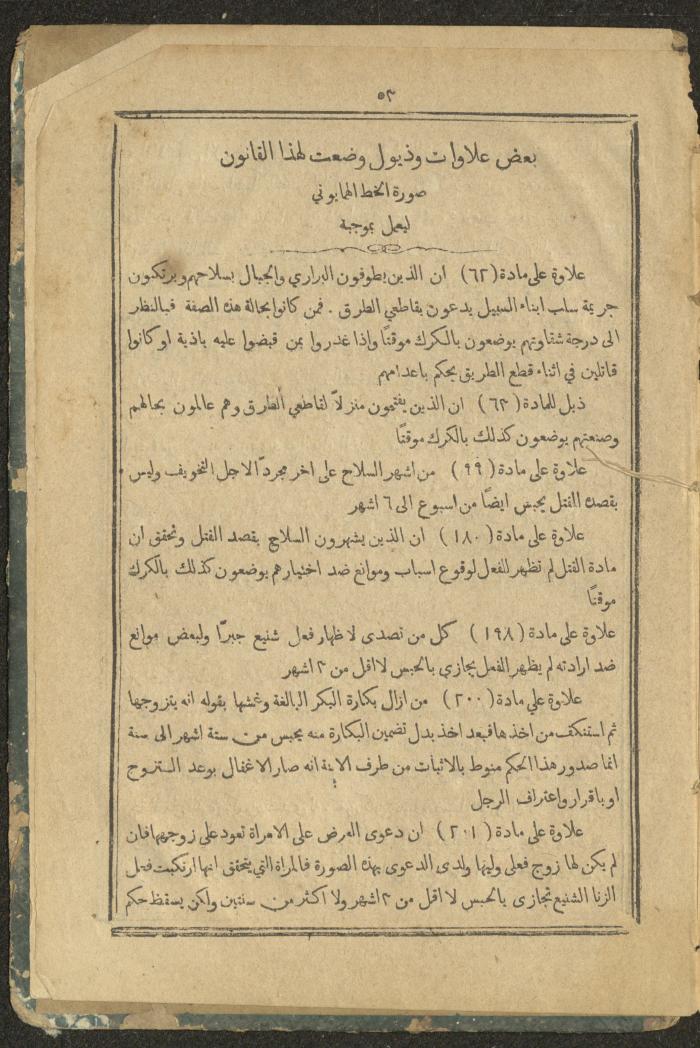 ٥٣
بعض علاوات وذيول وضعت لهذا القانون
صورة الخط الهمايوني
ليعمل بموجبة
علاوة على مادة (٦٢) ان الذين يطوفون البراري والجبال بسلاحهم ويرتكبون
جريمة سلب ابناء السبيل يدعون بقاطعي الطرق . فمن كانوا بحالة هذه الصفة فبالنظار
الى درجة شقاوتهم يوضعون بالكرك موقتًا واذا غدروا بمن قبضوا عليه باذية او كانوا
قاتلين في اثناء قطع الطريق يحكم باعدامهم
ذيل للمادة (٦٣) ان الذين يفتحون منزلاً لقاطعي الطرق وهم عالمون بحالهم
وصنعتهم يوضعون كذلك بالكرك موقتًا
علاوة على مادة (٩٩) من اشهر السلاح على اخر مجردًا لاجل التخويف وليس
بقصده القتل يحبس ايضًا من اسبوع الى ٦ اشهر
علاوة على مادة (١٨٠) ان الذين يشهرون السلاح بقصد القتل وتحقق ان
مادة القتل لم تظهر للفعل لوقوع اسباب وموانع ضد اختيارهم يوضعون كذلك بالكرك
موقتًا
علاوة على مادة (١٩٨) كل من تصدى لاظهار فعل شنيع جبرًا ولبعض موانع
ضد ارادته لم يظهر الفعل يجازى بالحبس لا اقل من ٣ اشهر
علاوة علي مادة (٢٠٠) من ازال بكارة البكر البالغة وغشها بقوله انه يتزوجها
ثم استنكف من اخذها فبعد اخذ بدل تضمين البكارة منه يحبس من ستة اشهر الى سنة
انما صدور هذا الحكم منوط بالاثبات من طرف الابنة انه صار الاغفال بوعد التزوج
او باقرار واعتراف الرجل
علاوة على مادة (٢٠١) ان دعوى العرض على الامراة تعود على زوجهم فان
لم يكن لها زوج فعلى وليها ولدى الدعوى بهذه الصورة فالمراة التي يتحقق انها ارتكبت فعل
الزنا الشنيع تجازى بالحبس لا اقل من ٣ اشهر ولا اكثر من سنتين ولكن يسقط حكم